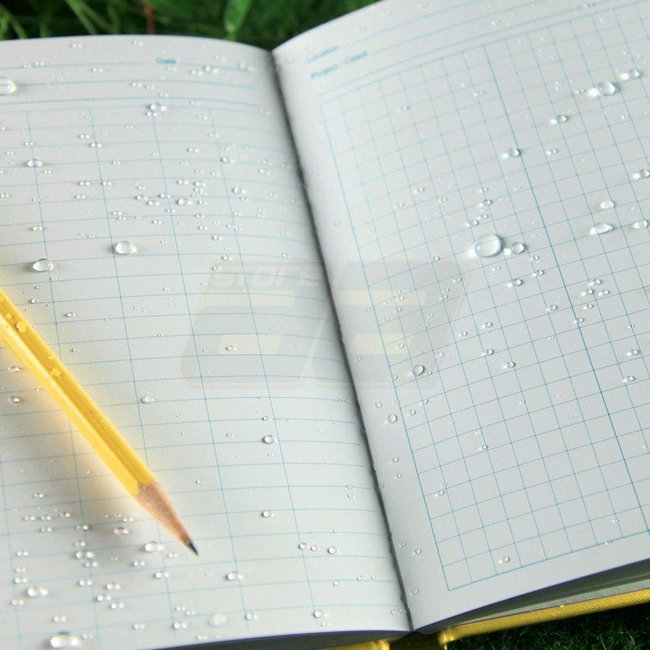 Date
Location
Project / Client
store